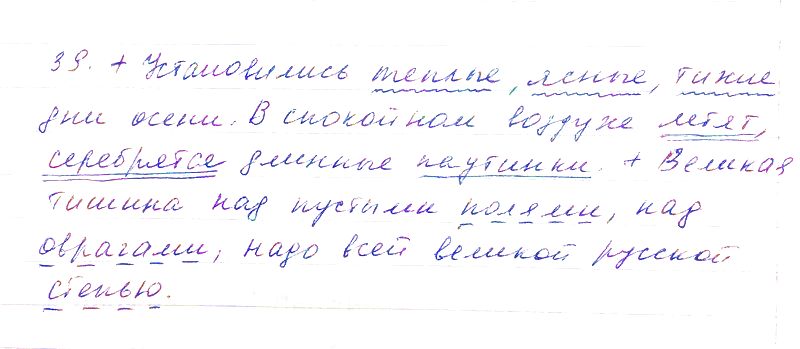 39. + Установились теплые, ясные, тихие
дни осени. В спокойном воздухе летят,
серебрятся длинные паутинки. + Великая
тишина над пустыми полями, над
оврагами, надо всей великой русской
степью.